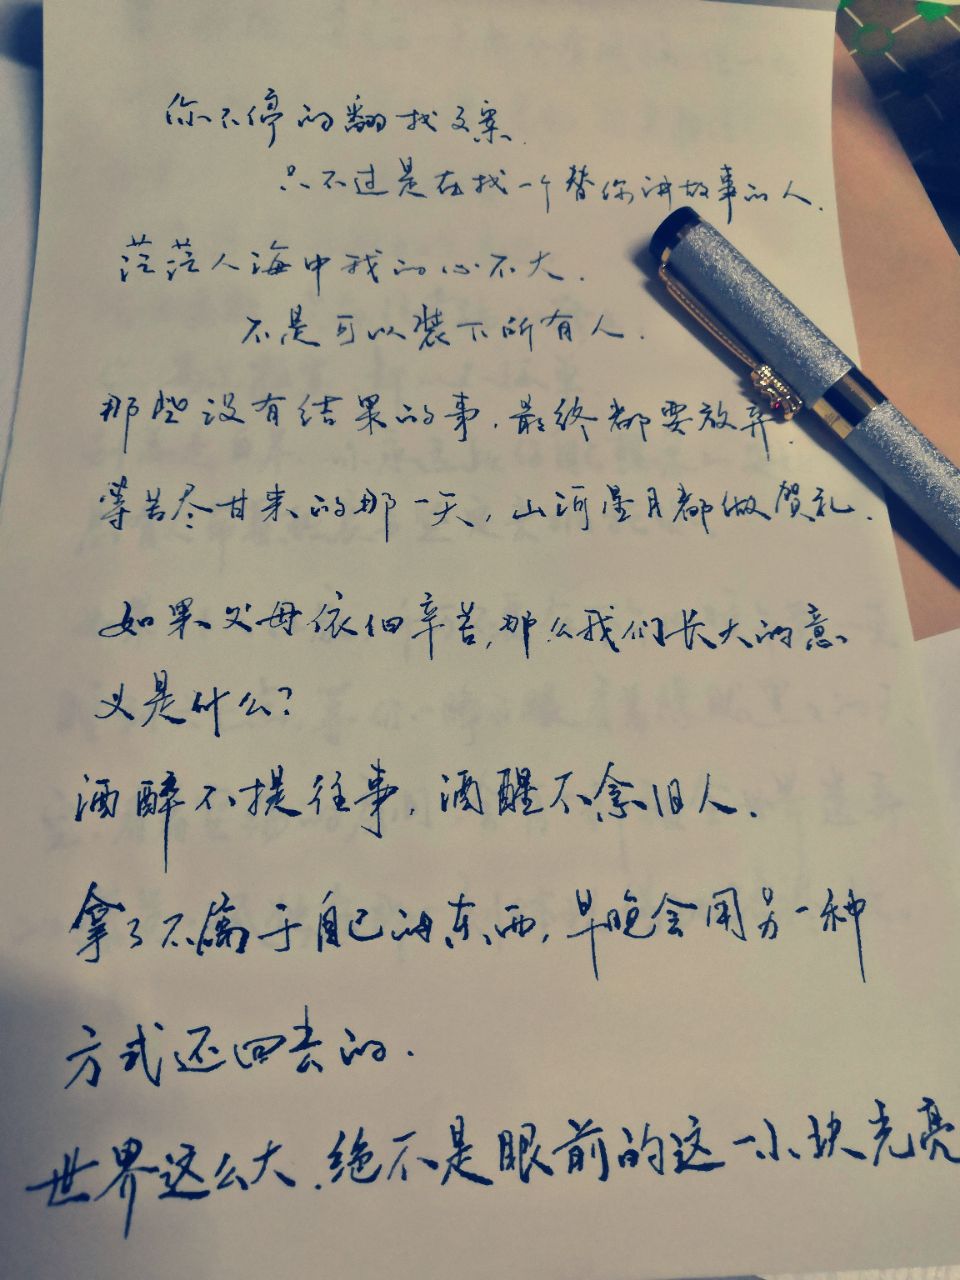 你不停的翻找文案.
只不过是在找一个替你讲故事的人.
茫茫人海中我的心不大.
不是可以装下所有人.
那些没有结果的事,最终都要放弃.
等苦尽甘来的那一天,山河星月都做贺礼.
如果父母依旧辛苦,那么我们长大的意
义是什么?
酒醉不提往事,酒醒不念旧人.
拿了不属于自己的东西,早晚会用另一种
方式还回去的.
世界这么大.绝不是眼前的这一小块光亮